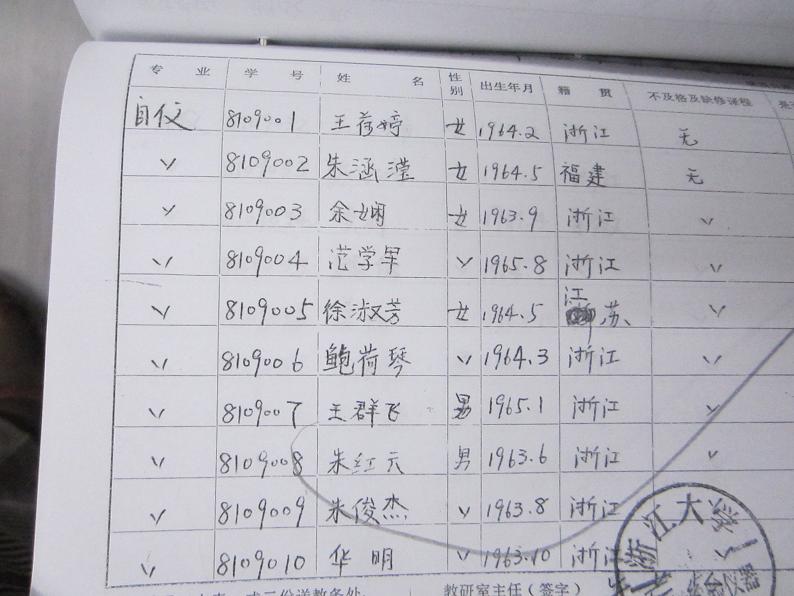 专 业 学 号 姓 名 性别 出生年月 籍 贯 不及格及缺修课程
自仪 8109001 王荷婷 女 1964.2 浙江 无
〃 8109002 朱涵滢 女 1964.5 福建 无
〃 8109003 余娴 女 1963.9 浙江 〃
〃 8109004 范学军 〃 1965.8 浙江 〃
〃 8109005 徐淑芳 女 1964.5 江苏 〃
〃 8109006 鲍荷琴 〃 1964.3 浙江 〃
〃 8109007 王群飞 男 1965.1 浙江 〃
〃 8109008 朱红元 男 1963.6 浙江 〃
〃 8109009 朱俊杰 〃 1963.8 浙江 〃
〃 8109010 华明 〃 1963.10 浙江
浙江大学
式二份送教务处 教研室主任（签字）